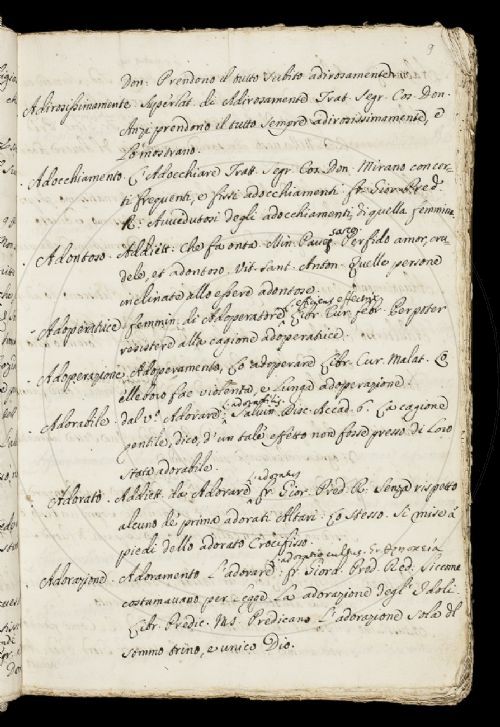 9
Don. Prendono il tutto subito adirosamente
Adirosissimamento. Superlat. di Adirosamente Tratt. Segr. Cos. Don.
Anzi prendono il tutto sempre adirosissimamente, e
lo mostrano.
Adocchiamento. L'Adocchiare Tratt. Segr. Cos. Don. Mirano con cer-
ti frequenti, e fissi adocchiamenti. fr. Gior. Pred.
R. Avvedutosi degli adocchiamenti, di quella femmina
Adontoso. Addiett. Che fa onta. Min. Pavesano Perfido amor, cru-
dele, et adontoso. Vit. Sant. Anton. Quelle persone
inclinate allo essere adontose.
efficiens effectrix
Adoperatrice. femmin. di Adoperatore Libr. Cur. febr. Per poter
resistere alla cagione adoperatrice.
Adoperazione. Adoperamento, Lo adoperare Libr. Cur. Malat. Co
elleboro fae violenta, e lunga adoperazione.
adorabilis
Adorabile. dal v. Adorare. Salvin. Disc. Accad. 6. La cagione
gentile, dico, d'un tale effetto non fosse presso di loro
stata adorabile.
adoratus
Adorato. Addiett. da Adorare fr. Gior. Pred. R. Senza rispetto
alcuno de' prima adorati Altari. Lo stesso. Si mise a'
piedi dello adorato Crocifisso.
adoratio cultus
Adorazione. Adoramento L'adorare. fr. Giord. Pred. Red. Siccome
costumavano per legge la adorazione degl'Idoli
Libr. Predic. MS. Predicano l'adorazione sola del
sommo trino, e unico Dio.